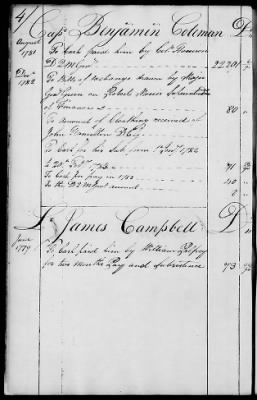 41
Capt Benjamin Coleman D
August 1781
To Cash paid him by Colo Harrison
D 2 M Genl 22201
Decr 1782
To Bills of exchange drawn by Major
Genl Green on Robert Morris Superintendent
of Finances 80
To amount of Cloathing received of
John Hamilton D.C.G.
To Cash for his Sub from 1782
71
To Cash for pay in 1782 40
To the D 2 M amount
Lt James Campbell D
June 1779
To Cash paid him by William
for two months Pay and Subsistence 93